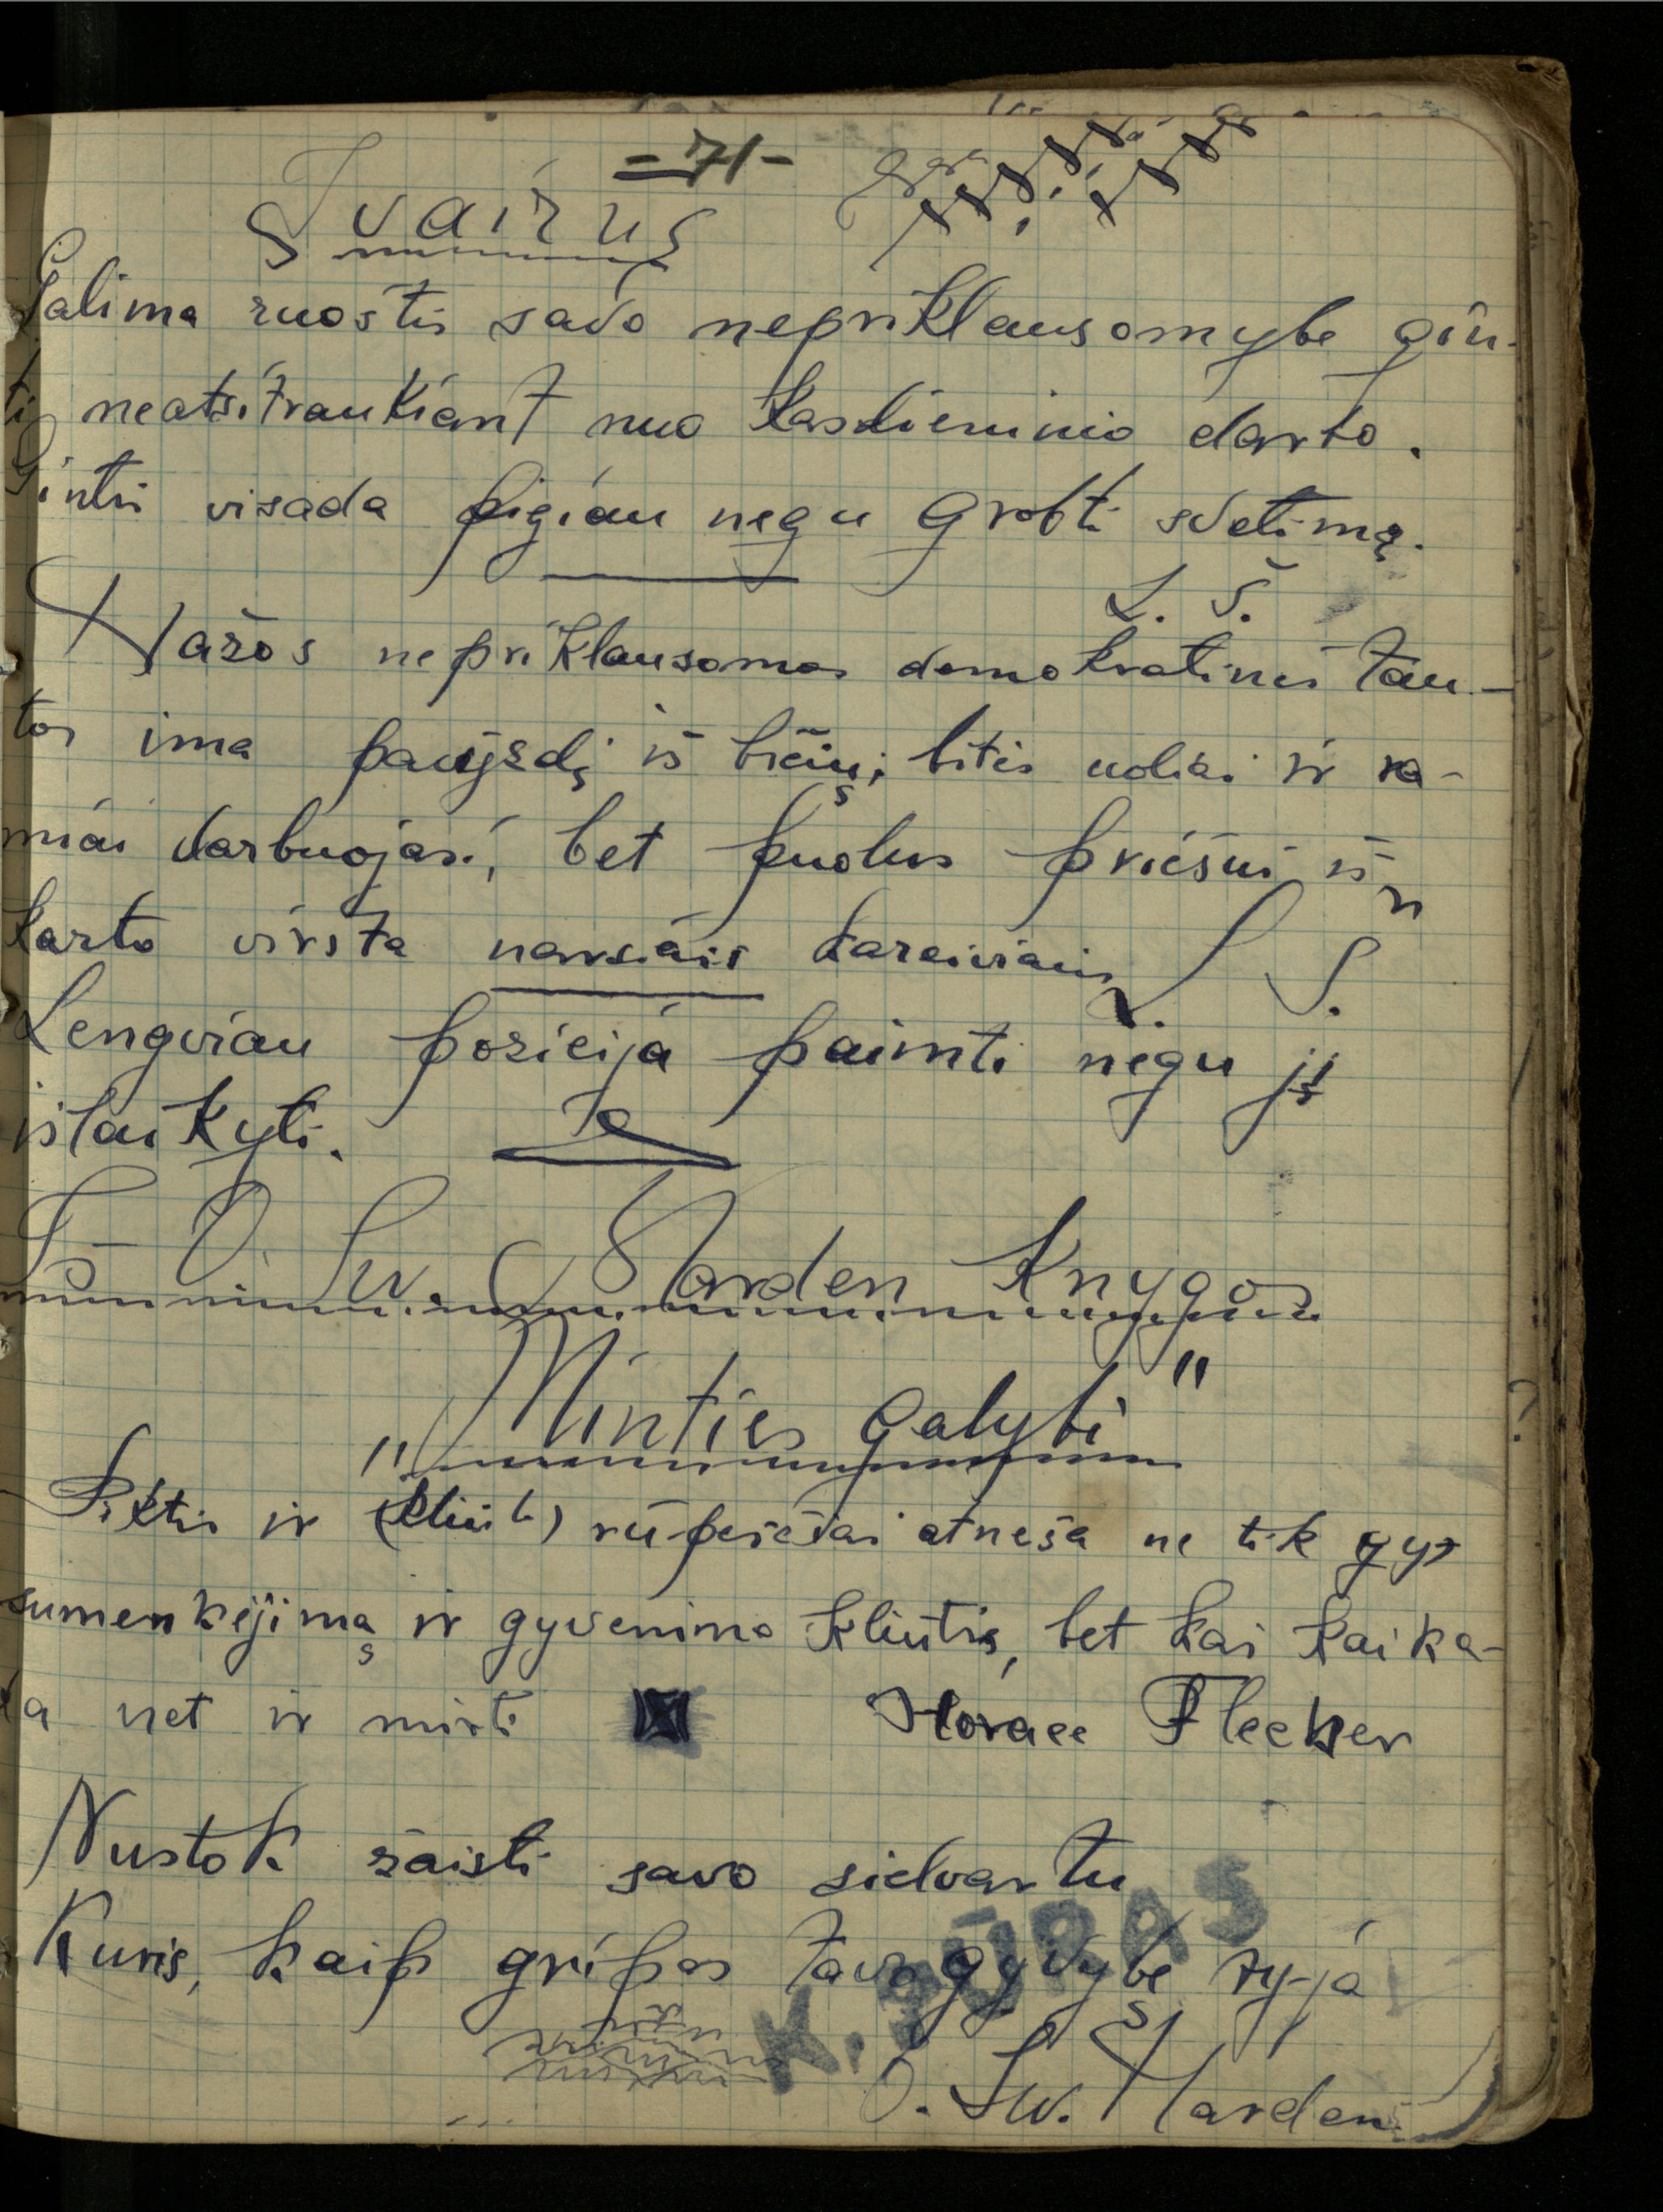 -71-
Įvairųs
Galima ruostis savo nepriklausomybe gin-
ti neatsitraukiant nuo kasdieninio darbo.
Gintis visada pigiau negu grobti svetimą.
L. Š.
Mažos nepriklausomos demokratinės tau-
tos ima pavyzdį iš bičių; bitės uoliai ir ra-
miai darbuojasi, bet puolus priešui iš
karto virsta narsiais kareiviais
L. S.
Lengviau poziciją paimti negu ją
išlaikyti.
Iš O. Sw. Marden Knygos
"Minties galybė"
Piktis ir (kliūt) rūpesčiai atneša ne tik gyv
sumenkėjimą ir gyvenimo kliūtis, bet kai kai ka-
da net ir mirti Horace Flecher
Nustok žaisti savo sielvartu
Kuris, kaip gripas tavo gyvybę ryja
K. BŪRAS
O. Sw. Marden